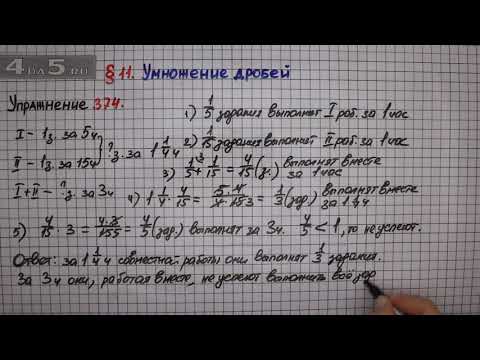 4 на 5.ru
§ 11. Умножение дробей
Упражнение 374.
I – 1з. за 5ч
II – 1з. за 15ч } ?з. за 1 1/4 ч
I+II – ?з. за 3ч
1) 1/5 задания выполнит I роб. за 1 час
2) 1/15 задания выполнит II роб. за 1 час
3) 1/5 + 1/15 = 4/15 (з.) выполнят вместе за 1 час
4) 1 1/4 · 4/15 = 5·4/4·15 3 = 1/3 (зад.) выполнят вместе за 1 1/4 ч
5) 4/15 · 3 = 4·3/15 5 = 4/5 (зад.) выполнят за 3ч. 4/5 < 1, то не успеют.
Ответ: за 1 1/4 ч совместной работы они выполнят 1/3 задания.
За 3ч они, работая вместе, не успеют выполнить всё зад